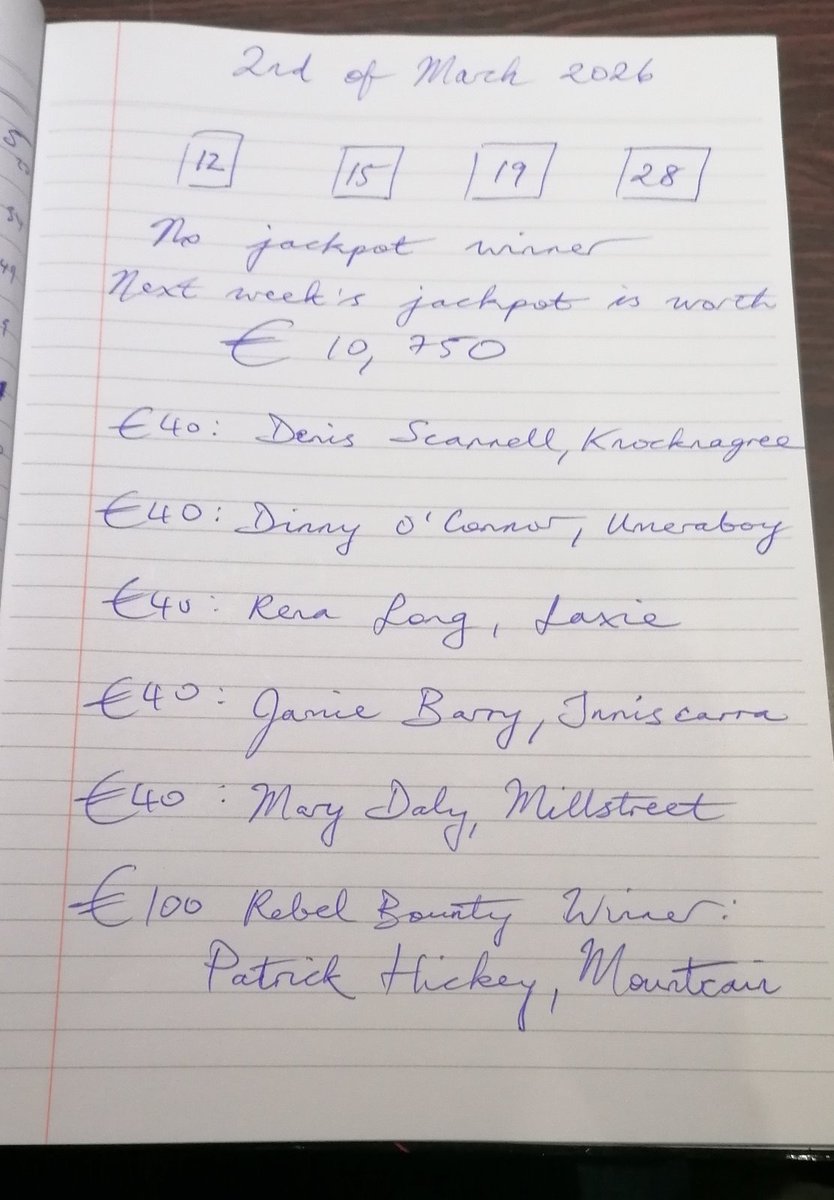 2nd of March 2026
12 15 19 28
No jackpot winner
Next week's jackpot is worth
€ 10,750
€40: Denis Scannell, Knocknagree
€40: Dinny O'Connor, Umeraboy
€40: Rena Long, Laxie
€40: Jamie Barry, Inniscarra
€40: Mary Daly, Millstreet
€100 Rebel Bounty Winner:
Patrick Hickey, Mountcain